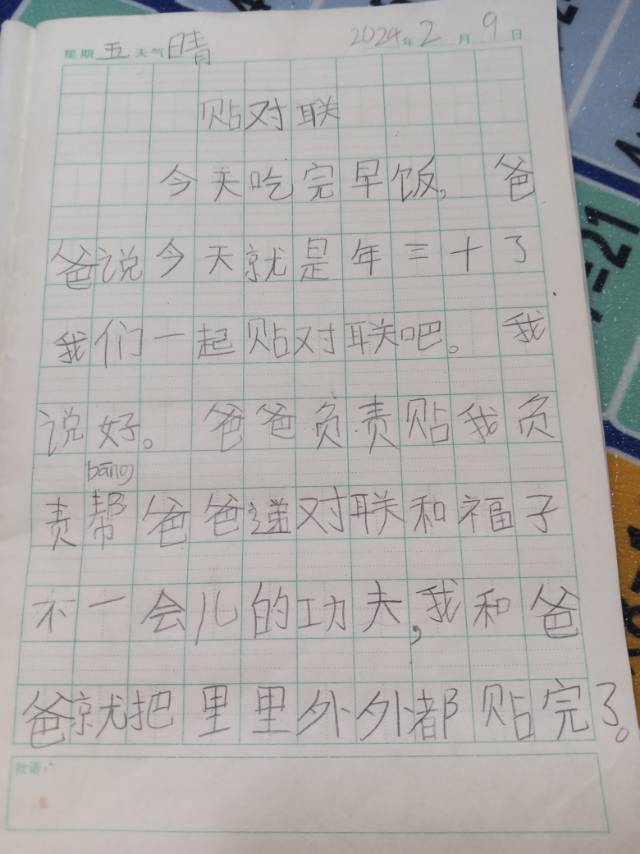 星期 五 天气 晴 2024年 2月 9日
贴对联
今天吃完早饭,爸
爸说今天就是年三十了
我们一起贴对联吧。我
说好。爸爸负责贴我负
bāng
责帮爸爸递对联和福子
不一会儿的功夫,我和爸
爸就把里里外外都贴完了。
批语: